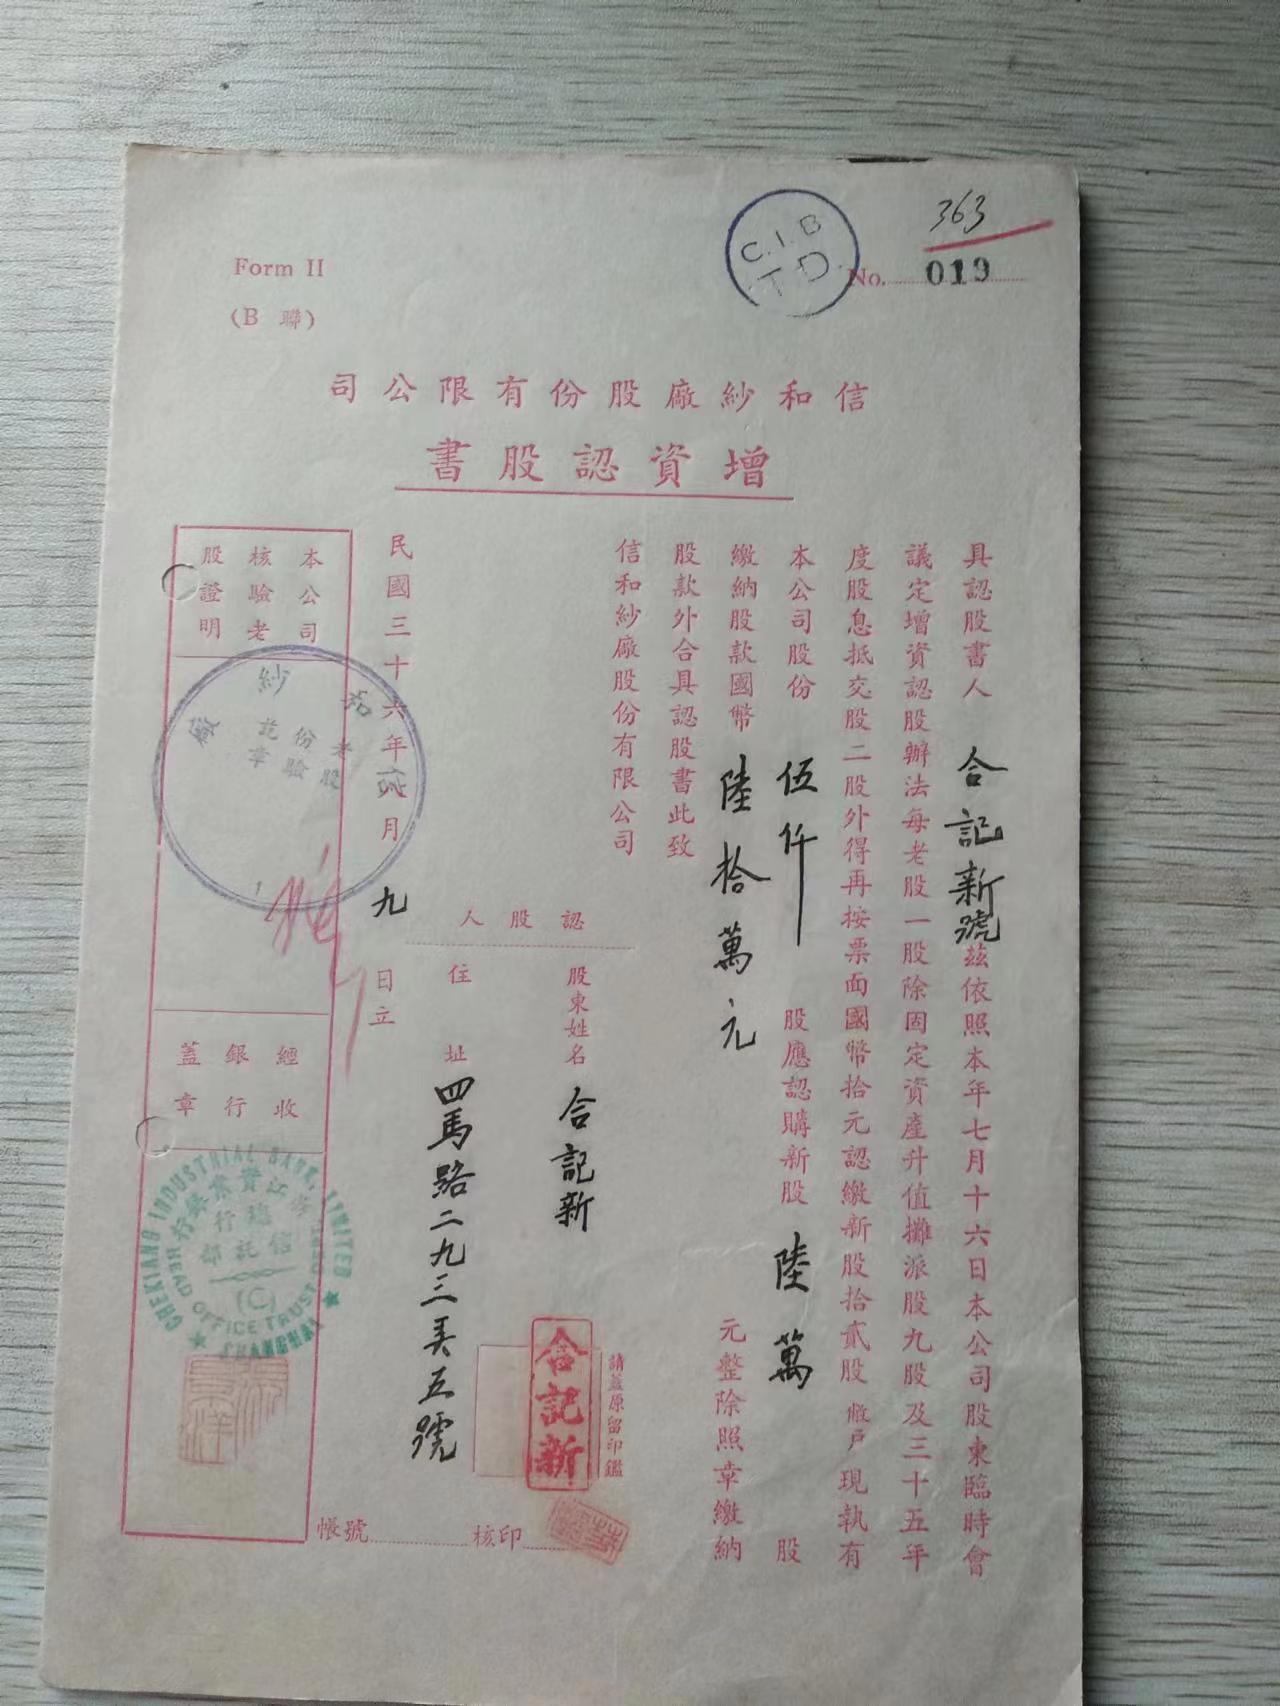 363
No. 019
C.I.B
T.D.
Form II
(B 聯)
信和紗廠股份有限公司
增資認股書
具認股書人 合記新號 茲依照本年七月十六日本公司股東臨時會
議定增資認股辦法每老股一股除固定資產升值攤派股九股及三十五年
度股息抵交股二股外得再按票面國幣拾元認繳新股拾貳股敝戶現執有
本公司股份 伍仟 股應認購新股 陸萬 股
繳納股款國幣 陸拾萬元 元整除照章繳納
股款外合具認股書此致
信和紗廠股份有限公司
認股人
股東姓名 合記新
住址 四馬路二九三弄五號
請蓋原留印鑑
合記新
核印
帳號
民國三十六年 月 九 日立
本公司核驗老股證明
和紗廠
老股份驗訖章
經收銀行蓋章
CHEKIANG INDUSTRIAL BANK, LIMITED
浙江實業銀行
總行信託部
(C)
HEAD OFFICE TRUST
SHANGHAI